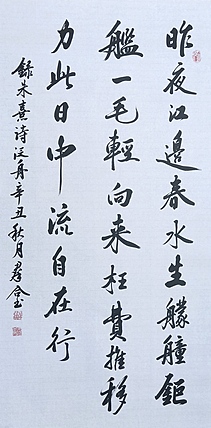 昨夜江邊春水生艨艟鉅
艦一毛輕向来枉費推移
力此日中流自在行
錄朱熹詩泛舟辛丑秋月